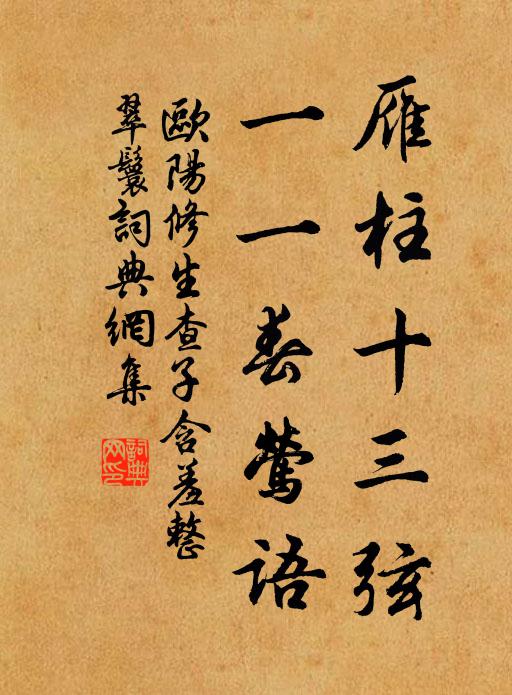 雁柱十三弦
一一春莺语
歐陽修生查子含羞整
翠鬟詞典網集
詞典网印